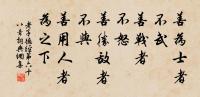 善為士者
不武
善戰者
不怒
善勝敵者
不與
善用人者
為之下
老子道德經第六十
八章